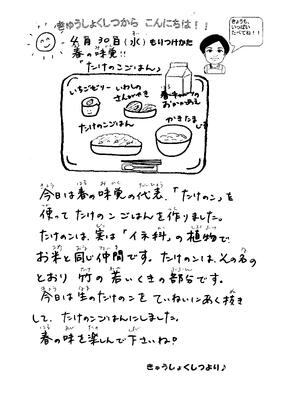 きゅうしょくしつから こんにちは！
きょうも、
いっぱい
たべてね!!
4月30日(水)もりつけかた
春の味覚!!
「たけのこごはん」
いちごゼリー いわしの
さんがやき
春キャベツの
おかかあえ
たけのこごはん
かきたま
今日は春の味覚の代表、「たけのこ」を
使って たけのこごはんを作りました。
たけのこは、実は「イネ科」の植物で
お米と同じ仲間です。たけのこは、その名の
とおり 竹の若いくきの部分です。
今日は生のたけのこを ていねいにあく抜き
して、たけのこごはんにしました。
春の味を楽しんで下さいね?
きゅうしょくしつより♪